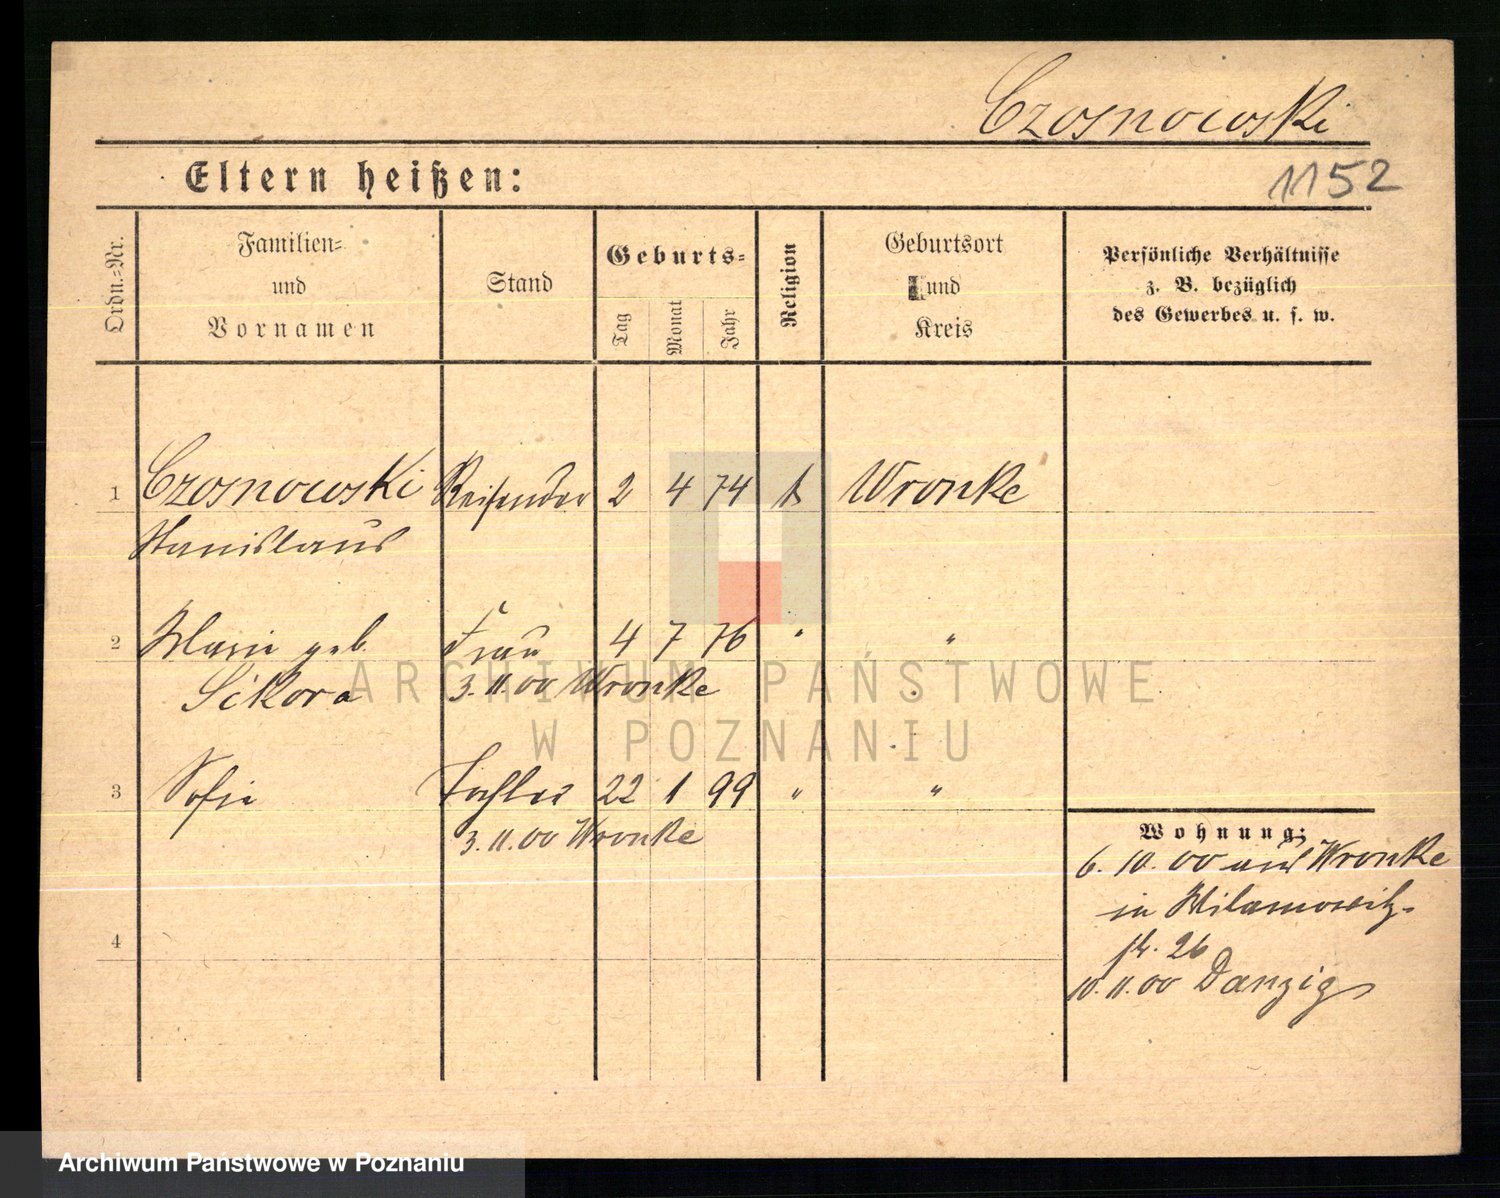 Czosnowski
Eltern heißen:
1152
Ordn.-Nr.
Familien-
und
Vornamen
Stand
Geburts-
Tag
Monat
Jahr
Religion
Geburtsort
und
Kreis
Persönliche Verhältnisse
z. B. bezüglich
des Gewerbes u. s. w.
1 Czosnowski Reisender 2 4 74 k Wronke
Stanislaus
2 Marie geb. Frau 4 7 76 " "
Sikora 3.11.00 Wronke
3 Sofie Tochter 22 1 99 " "
3.11.00 Wronke
4
Wohnung:
6.10.00 aus Wronke
in Wilamowitz-
str. 26
10.11.00 Danzig
ARCHIWUM PAŃSTWOWE
W POZNANIU
Archiwum Państwowe w Poznaniu